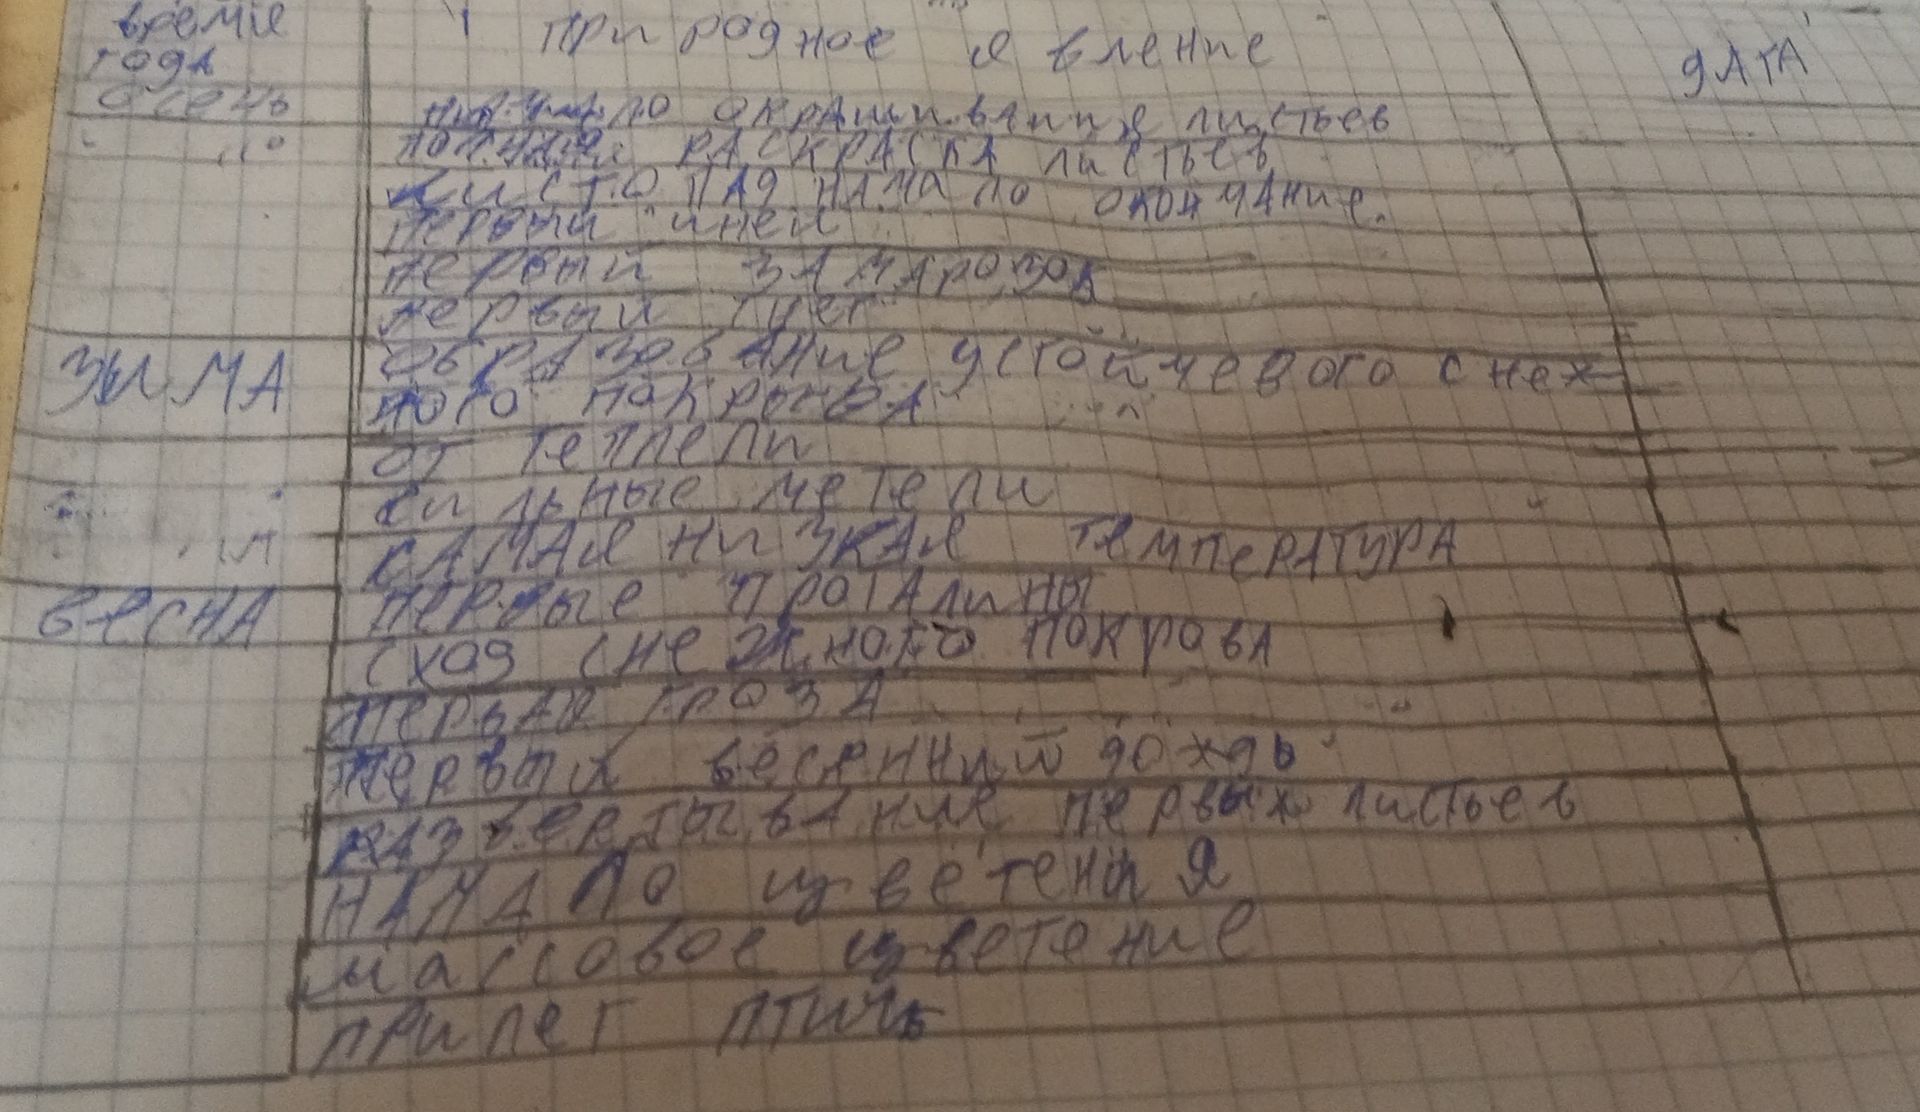 время природное явление дАТА
года
осень начало окрашивание листьев
полная РАСКРАСКА листьев
листопад начало окончание.
первый иней
первый зАмАрозок
первый снег
Зима образование устойчевого снеж
ного покрывА
оттеплели
сильные метели
сАМАя низкАя температурА
весна первые проталины
сход снежного покровА
первая гроза
первый весенний дождь
развертывание первых листьев
начало цветения
массовое цветение
прилет птиць